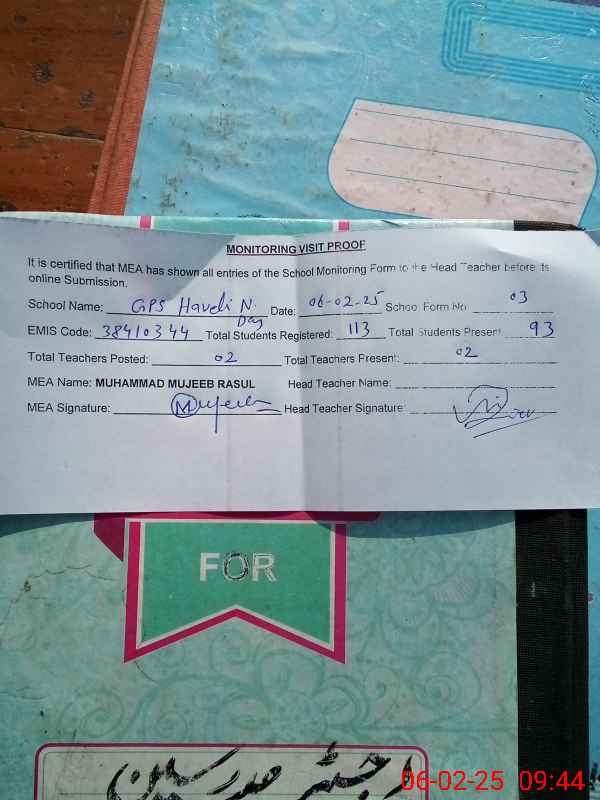 MONITORING VISIT PROOF
It is certified that MEA has shown all entries of the School Monitoring Form to the Head Teacher before its
online Submission.
School Name: GPS Haveli N. Day Date: 06-02-25 School Form No. 03
EMIS Code: 38410344 Total Students Registered: 113 Total Students Present 93
Total Teachers Posted: 02 Total Teachers Present: 02
MEA Name: MUHAMMAD MUJEEB RASUL Head Teacher Name:
MEA Signature: Mujeeb Head Teacher Signature:
FOR
رجسٹر
06-02-25 09:44